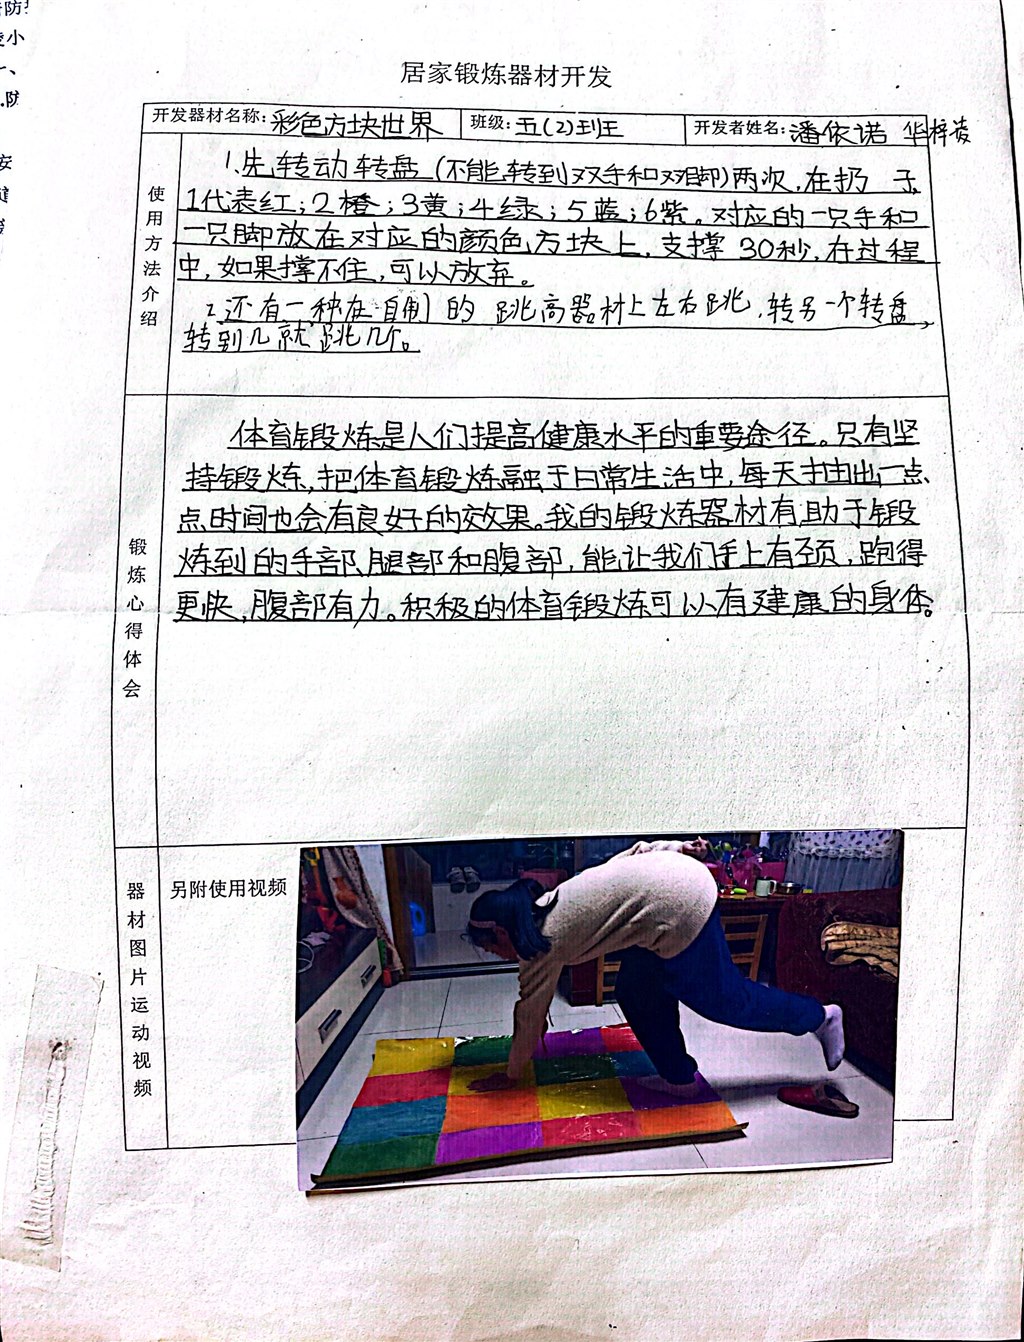 居家锻炼器材开发
开发器材名称：彩色方块世界 班级：五(2)班 开发者姓名：潘依诺 华梓
使用方法介绍
1.先转动转盘(不能转到双手和双脚)两次,在扔 子,
1代表红；2橙；3黄；4绿；5蓝；6紫。对应的一只手和
一只脚放在对应的颜色方块上,支撑30秒,在过程
中,如果撑不住,可以放弃。
2.还有一种在自制的跳高器材上左右跳,转另一个转盘,
转到几就跳几个。
锻炼心得体会
体育锻炼是人们提高健康水平的重要途径。只有坚
持锻炼,把体育锻炼融于日常生活中,每天抽出一点
点时间也会有良好的效果。我的锻炼器材有助于锻
炼到的手部、腿部和腹部,能让我们手上有颈,跑得
更快,腹部有力。积极的体育锻炼可以有建康的身体。
器材图片运动视频
另附使用视频
防
小
一、
安